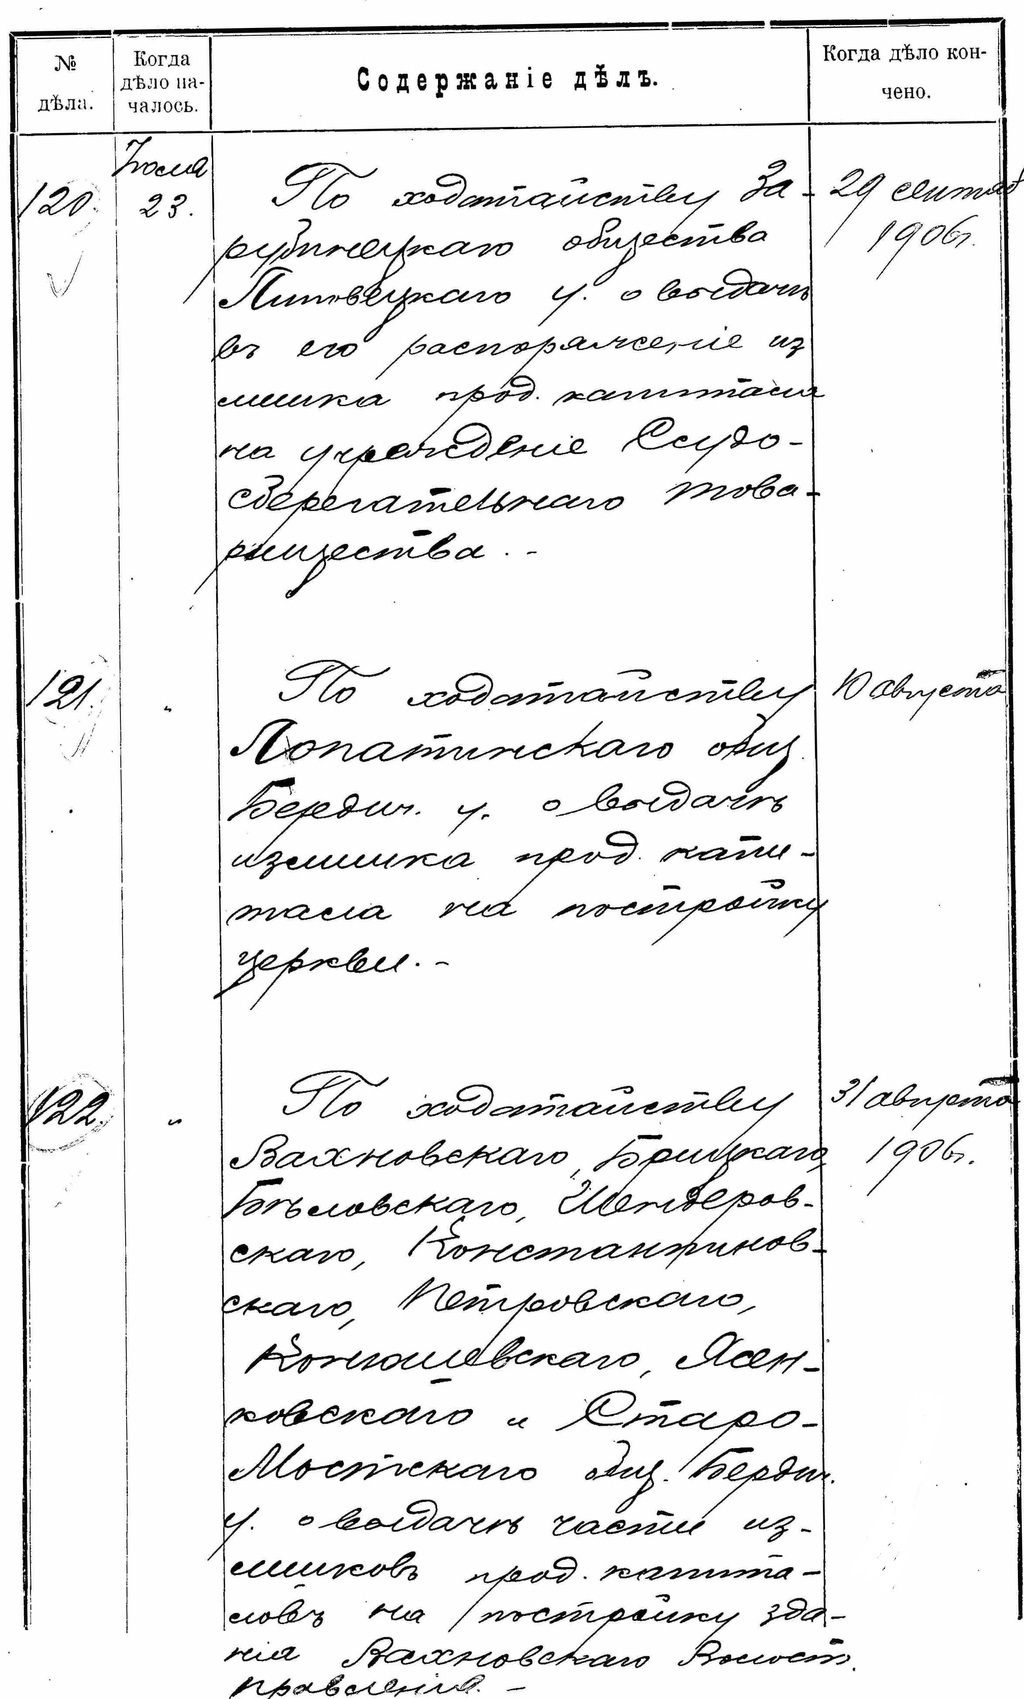 № дѣла.
Когда дѣло на-чалось.
Содержаніе дѣлъ.
Когда дѣло кон-чено.
120.
Іюля 23.
По ходатайству За-
рубинецкаго общества
Липовецкаго у. о выдачѣ
въ его распоряженіе из
лишка прод. капитала
на учрежденіе Ссудо-
сберегательнаго това-
рищества. -
29 сентяб
1906г.
121.
"
По ходатайству
Лопатинскаго общ.
Бердич. у. о выдачѣ
излишка прод. капи-
тала на постройку
церкви. -
10 августа
122.
"
По ходатайству
Вахновскаго, Брицкаго,
Бѣловскаго, Шендеров-
скаго, Константинов-
скаго, Петровскаго,
Конюшевскаго, Ясен-
ковскаго и Старо-
Мостскаго общ. Бердич.
у. о выдачѣ части из-
лишковъ прод. капита-
ловъ на постройку зда-
нія Вахновскаго Волост.
правленія. -
31 августа
1906г.